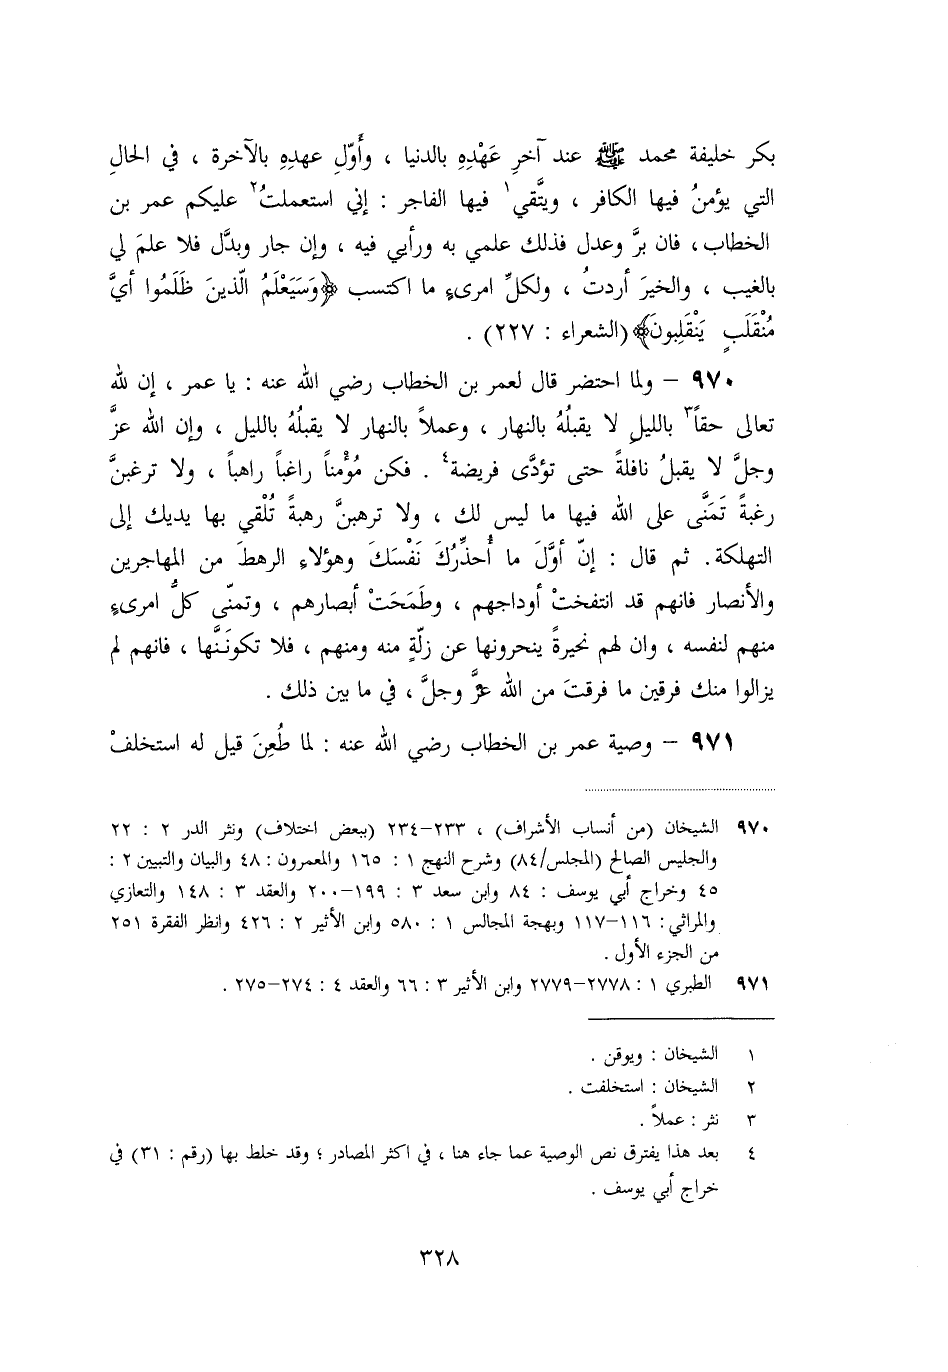 بكر خليفة محمد ﷺ عند آخرِ عَهْدِهِ بالدنيا ، وأَوّلِ عهدِهِ بالآخرة ، في الحالِ
التي يؤمنُ فيها الكافر ، ويتَّقي١ فيها الفاجر : إني استعملتُ٢ عليكم عمر بن
الخطاب ، فان برَّ وعدل فذلك علمي به ورأيي فيه ، وإن جار وبدَّل فلا علمَ لي
بالغيب ، والخيرَ أردتُ ، ولكلِّ امرىءٍ ما اكتسب ﴿وَسَيَعْلَمُ الّذينَ ظَلَمُوا أيَّ
مُنْقَلَبٍ يَنْقَلِبونَ﴾ (الشعراء : ٢٢٧) .
٩٧٠ – ولما احتضر قال لعمر بن الخطاب رضي الله عنه : يا عمر ، إن لله
تعالى حقاً٣ بالليلِ لا يقبلُهُ بالنهار ، وعملاً بالنهار لا يقبلُهُ بالليل ، وإن الله عزَّ
وجلَّ لا يقبلُ نافلةً حتى تؤدَّى فريضة٤ . فكن مُؤْمناً راغباً راهباً ، ولا ترغبنَّ
رغبةً تَمَنَّى على الله فيها ما ليس لك ، ولا ترهبنَّ رهبةً تُلْقي بها يديك إلى
التهلكة . ثم قال : إنّ أوَّلَ ما أُحذِّرُكَ نَفْسَكَ وهؤلاء الرهطَ من المهاجرين
والأنصار فانهم قد انتفختْ أوداجهم ، وطَمَحَتْ أبصارهم ، وتمنّى كلُّ امرىءٍ
منهم لنفسه ، وان لهم نحيرةً ينحرونها عن زلّةٍ منه ومنهم ، فلا تكونَنَّها ، فانهم لم
يزالوا منك فرقين ما فرقتَ من الله عزَّ وجلَّ ، في ما بين ذلك .
٩٧١ – وصية عمر بن الخطاب رضي الله عنه : لما طُعِنَ قيل له استخلفْ
٩٧٠ الشيخان (من أنساب الأشراف) ، ٢٣٣–٢٣٤ (ببعض اختلاف) ونثر الدر ٢ : ٢٢
والجليس الصالح (المجلس/٨٤) وشرح النهج ١ : ١٦٥ والمعمرون : ٤٨ والبيان والتبيين ٢ :
٤٥ وخراج أبي يوسف : ٨٤ وابن سعد ٣ : ١٩٩–٢٠٠ والعقد ٣ : ١٤٨ والتعازي
والمراثي : ١١٦–١١٧ وبهجة المجالس ١ : ٥٨٠ وابن الأثير ٢ : ٤٢٦ وانظر الفقرة ٢٥١
من الجزء الأول .
٩٧١ الطبري ١ : ٢٧٧٨–٢٧٧٩ وابن الأثير ٣ : ٦٦ والعقد ٤ : ٢٧٤–٢٧٥ .
١ الشيخان : ويوقن .
٢ الشيخان : استخلفت .
٣ نثر : عملاً .
٤ بعد هذا يفترق نص الوصية عما جاء هنا ، في اكثر المصادر ؛ وقد خلط بها (رقم : ٣١) في
خراج أبي يوسف .
٣٢٨